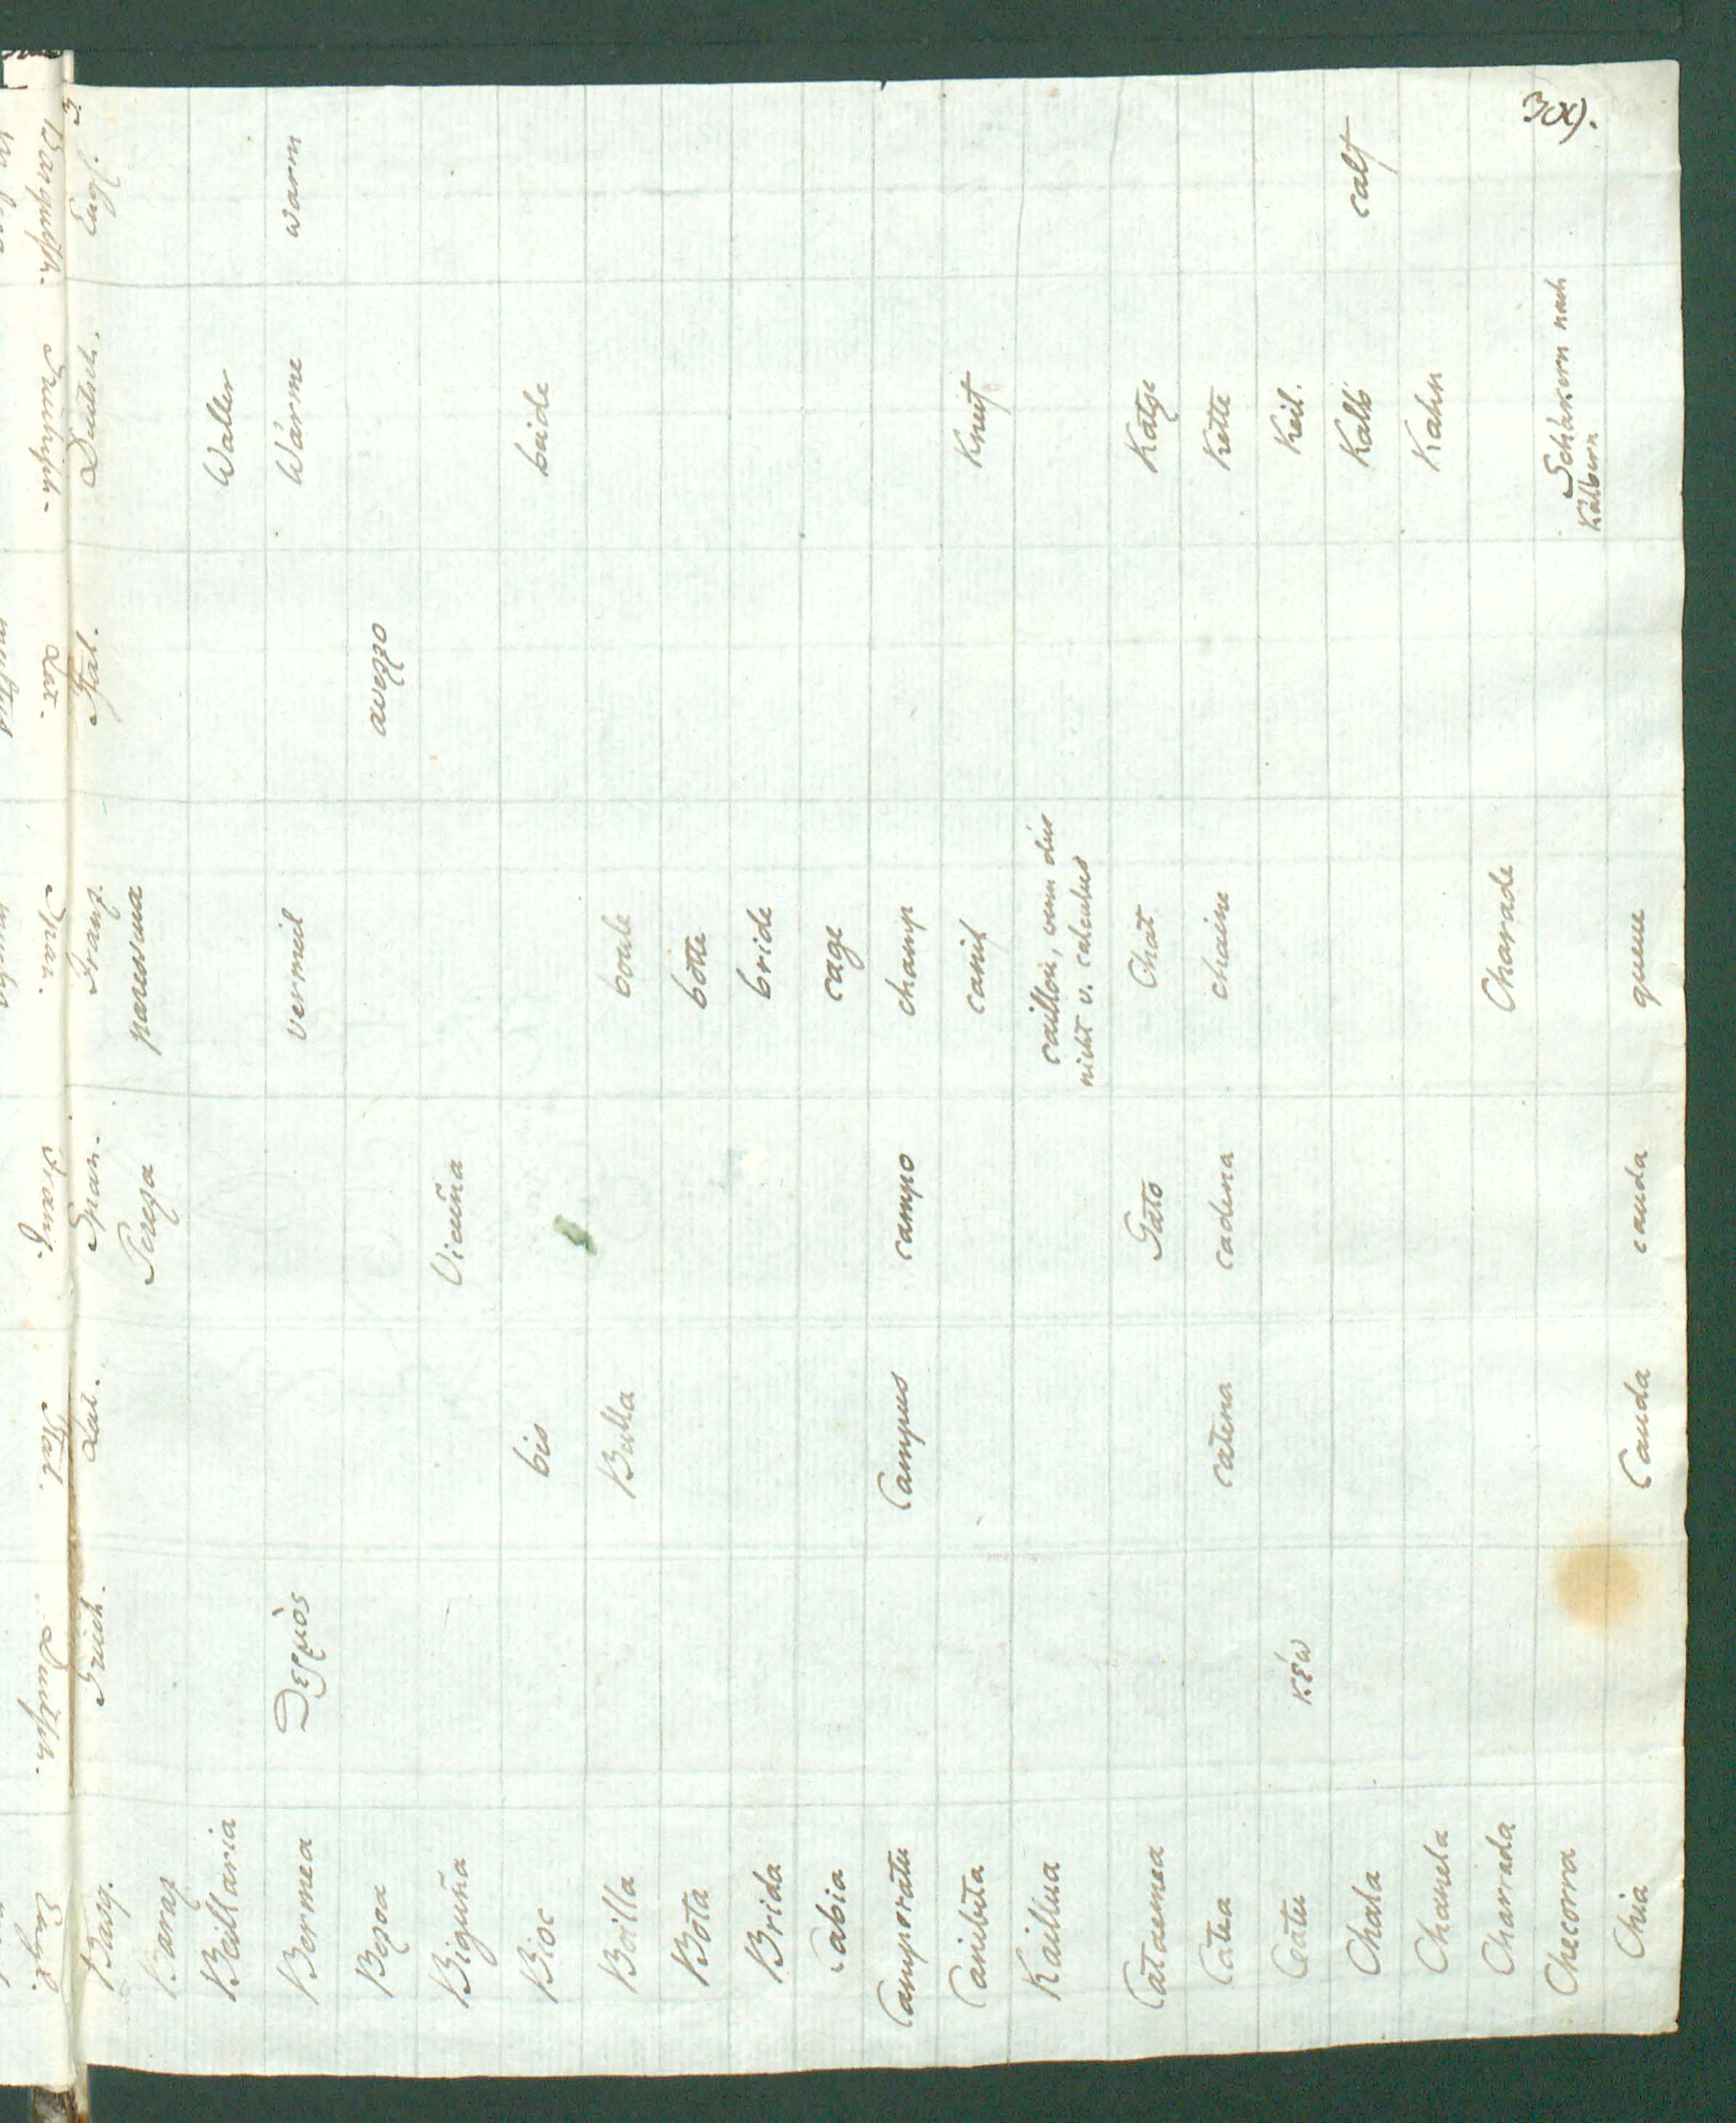 3α).
Basq. Griech. Lat. Span. Franz. Ital. Deutsch. Engl.
Baraz Pereza paressua
Beillaria Waller
Bermea Θερμὸς vermeil Wärme warm
Bezoa avezzo
Biguña Vicuña
Bioc bis beide
Boilla Bulla boule
Bota botte
Brida bride
Cabia cage
Camporatu Campus campo champ
Canibita canif Kneif
Kaillua caillou, wenn dies
nicht v. calculus
Cataemea Gato Chat Katze
Catea catena cadena chaine Kette
Catu κέω Keil.
Chala Kalb calf
Chanela Kahn
Charrada Charade
Checorra Schäkern nach
Kälbern
Chuia Cauda cauda queue